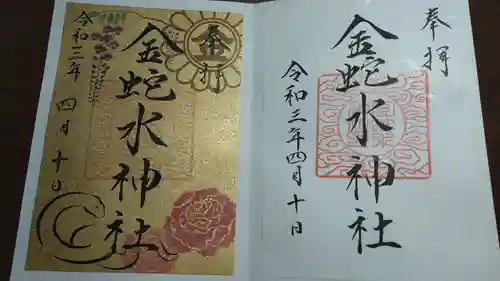 奉拝
金蛇水神社
令和三年四月十日
金
奉拝
金蛇水神社
令和三年
四月十日